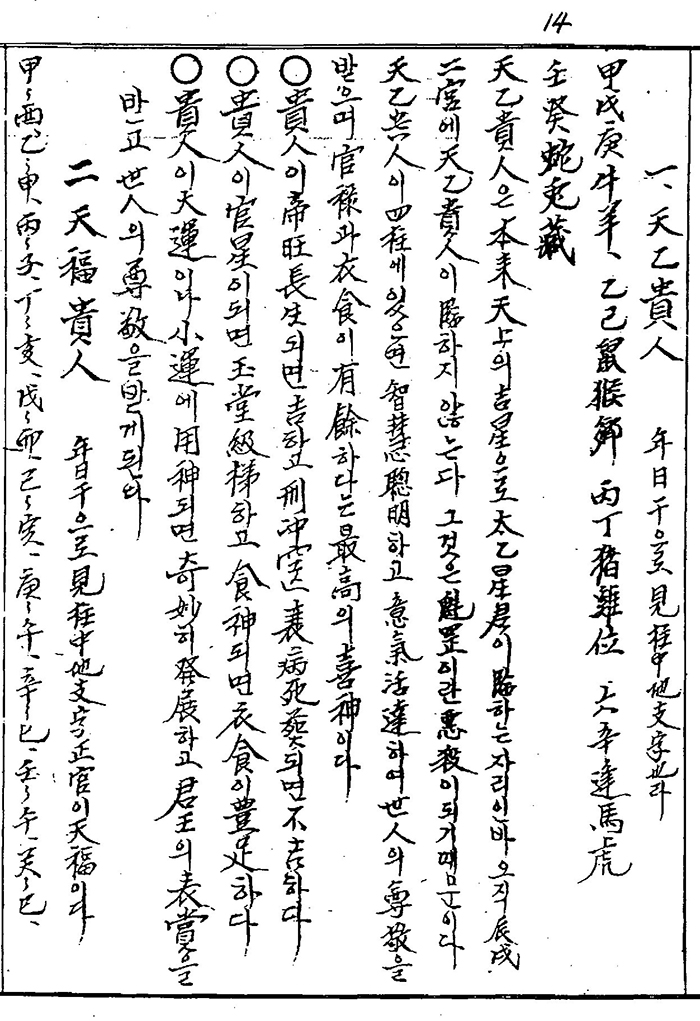 14
一、天乙貴人 年日干으로 見 柱中地支字也라
甲戊庚牛羊、乙己鼠猴鄕 丙丁猪雞位 六辛逢馬虎
壬癸蛇兎藏
天乙貴人은 本来 天上의 吉星으로 太乙星君이 臨하는 자리인바 오직 辰戌
二宮에 天乙貴人이 臨하지 않는다 그것은 魁罡이란 惡殺이되기때문이다
天乙貴人이 四柱에있으면 智慧聰明하고 意氣活達하여 世人의 尊敬을
받으며 官禄과 衣食이 有餘하다는 最高의 喜神이다
○ 貴人이 帝旺長生되면 吉하고 刑冲空 衰病死葬되면 不吉하다
○ 貴人이 官星이되면 玉堂級梯하고 食神되면 衣食이 豊足하다
○ 貴人이 大運이나 小運에 用神되면 奇妙히 發展하고 君王의 表賞을
받고 世人의 尊敬을 받게된다
二 天福貴人 年日干으로 見 柱中地支字 正官이 天福이다
甲〻酉、乙〻申、丙〻子、丁〻亥、戊〻卯、己〻寅、庚〻午、辛〻巳、壬〻午、癸〻巳、